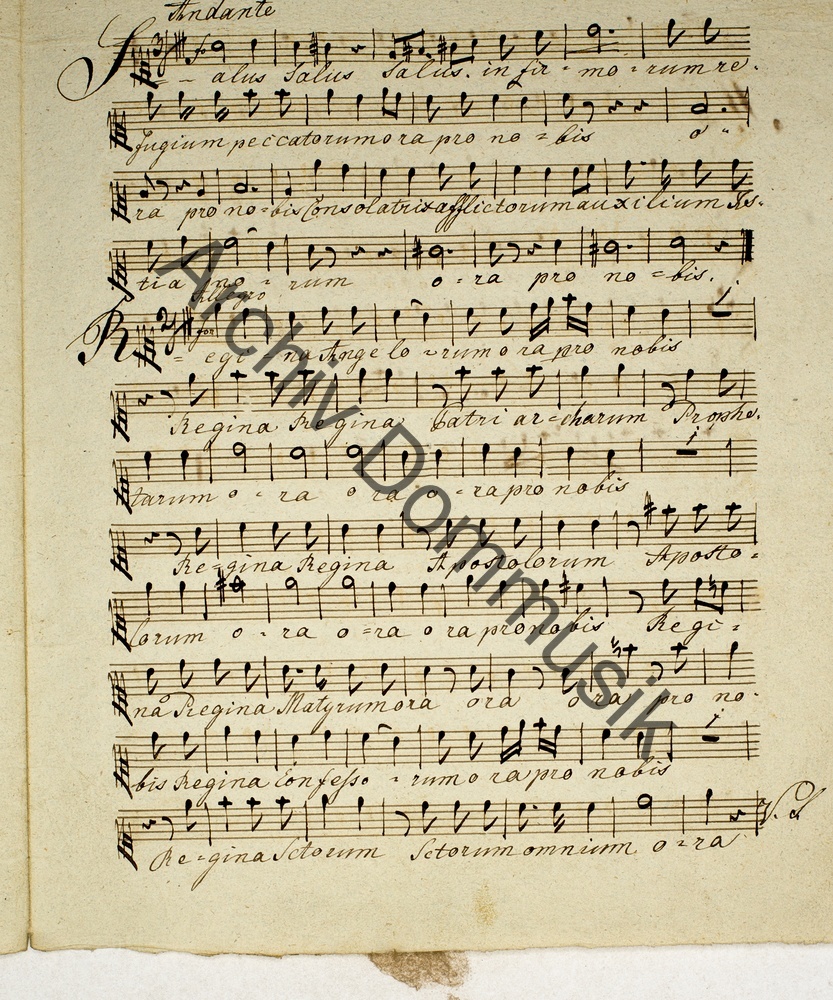 Andante
Salus Salus Salus. in fir - mo - rum re -
fugium peccatorum ora pro no = bis o -
ra pro no = bis Consolatrix afflictorum auxilium
tia no - rum o - ra pro no = bis.
Allegro
Regi - na Ange lo - rum o ra pro nobis
Regina Regina Patri ar = charum Prophe.
tarum o - ra o ra o - ra pro nobis
Re = gina Regina Apostolorum Aposto =
lorum o - ra o = ra o ra pro nobis Regi =
na Regina Matyrum ora ora ora pro no -
bis Regina Confesso - rum o ra pro nobis
Re = gina Sctorum Sctorum omnium o = ra
Archiv Dommusik